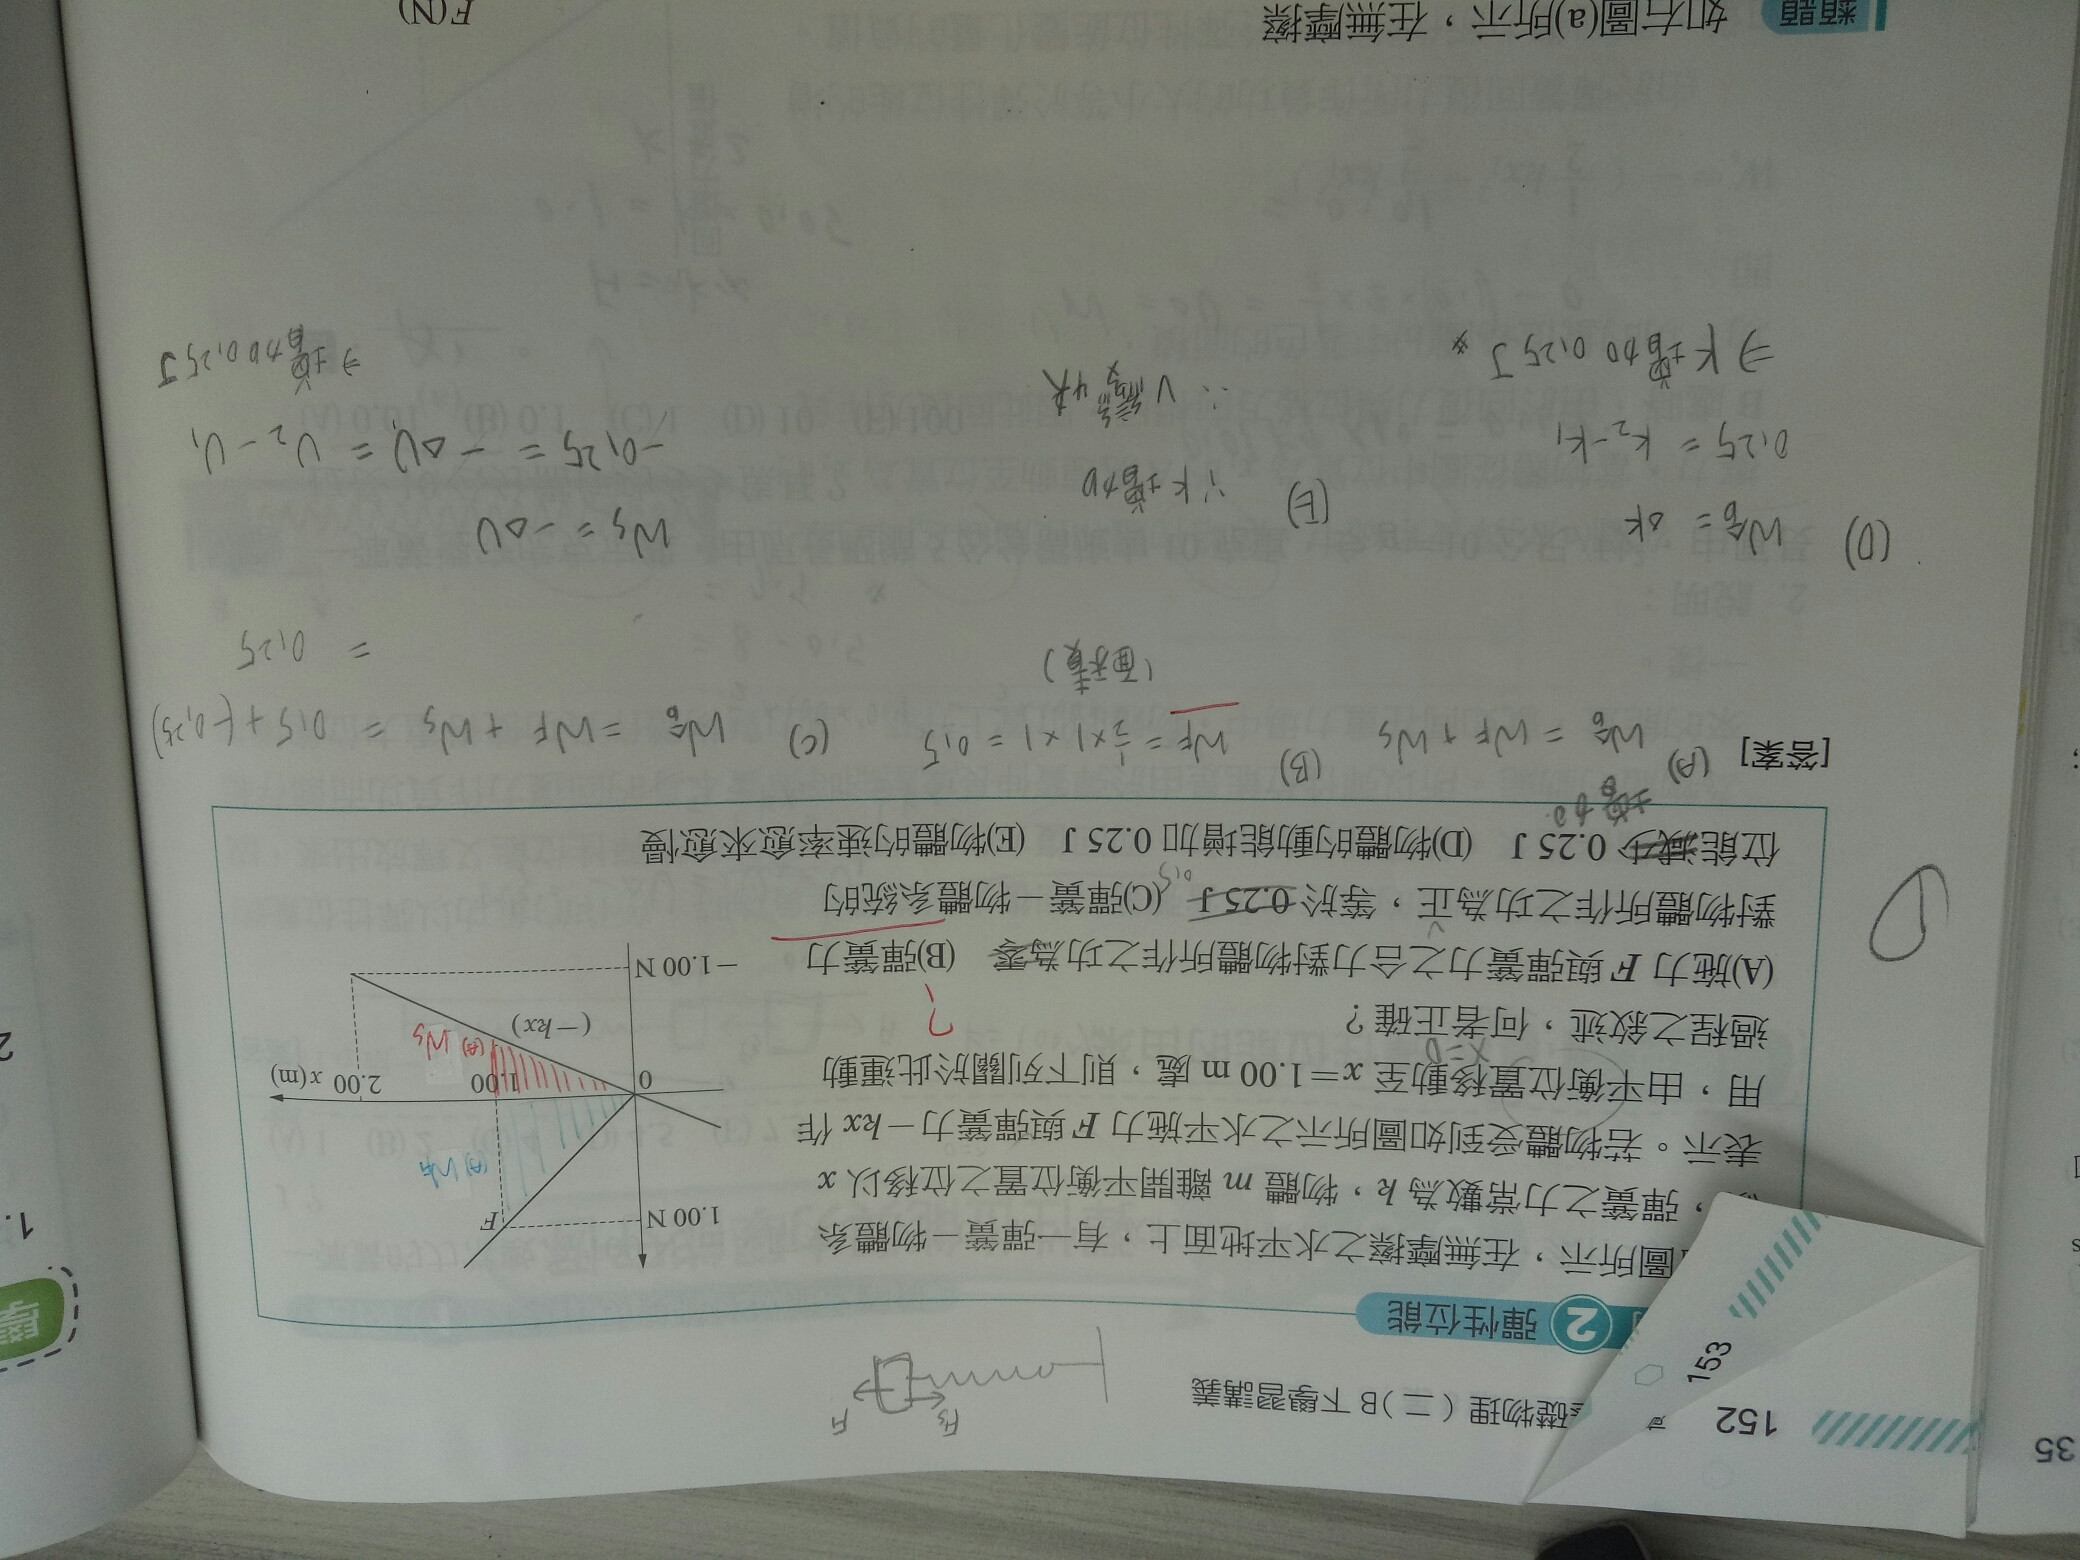 152
153
基礎物理(二)B下學習講義
2 彈性位能
圖所示,在無摩擦之水平地面上,有一彈簧-物體系
,彈簧之力常數為 k,物體 m 離開平衡位置之位移以 x
表示。若物體受到如圖所示之水平施力 F 與彈簧力-kx 作
用,由平衡位置移動至 x=1.00 m 處,則下列關於此運動
x=0
過程之敘述,何者正確?
(A)施力 F 與彈簧力之合力對物體所作之功為零 (B)彈簧力
對物體所作之功為正,等於 0.25 J (C)彈簧-物體系統的
0.5
位能減少 0.25 J (D)物體的動能增加 0.25 J (E)物體的速率愈來愈慢
增加
?
1.00 N
F
(A) WF
0
1.00
2.00
x (m)
(A) WS
(-kx)
-1.00 N
FS
F
[答案]
(A) W合 = WF + WS
(B) WF = 1/2 × 1 × 1 = 0.5
(面積)
(C) W合 = WF + WS = 0.5 + (-0.25)
= 0.25
WS = -ΔU
-0.25 = -ΔU = U2 - U1
⇒ 增加 0.25 J
(D) W合 = ΔK
0.25 = K2 - K1
⇒ K增加 0.25 J
(E) ∵ K增加
∴ V
類題
如右圖(a)所示,在無摩擦
F(N)
35
1.
2
學